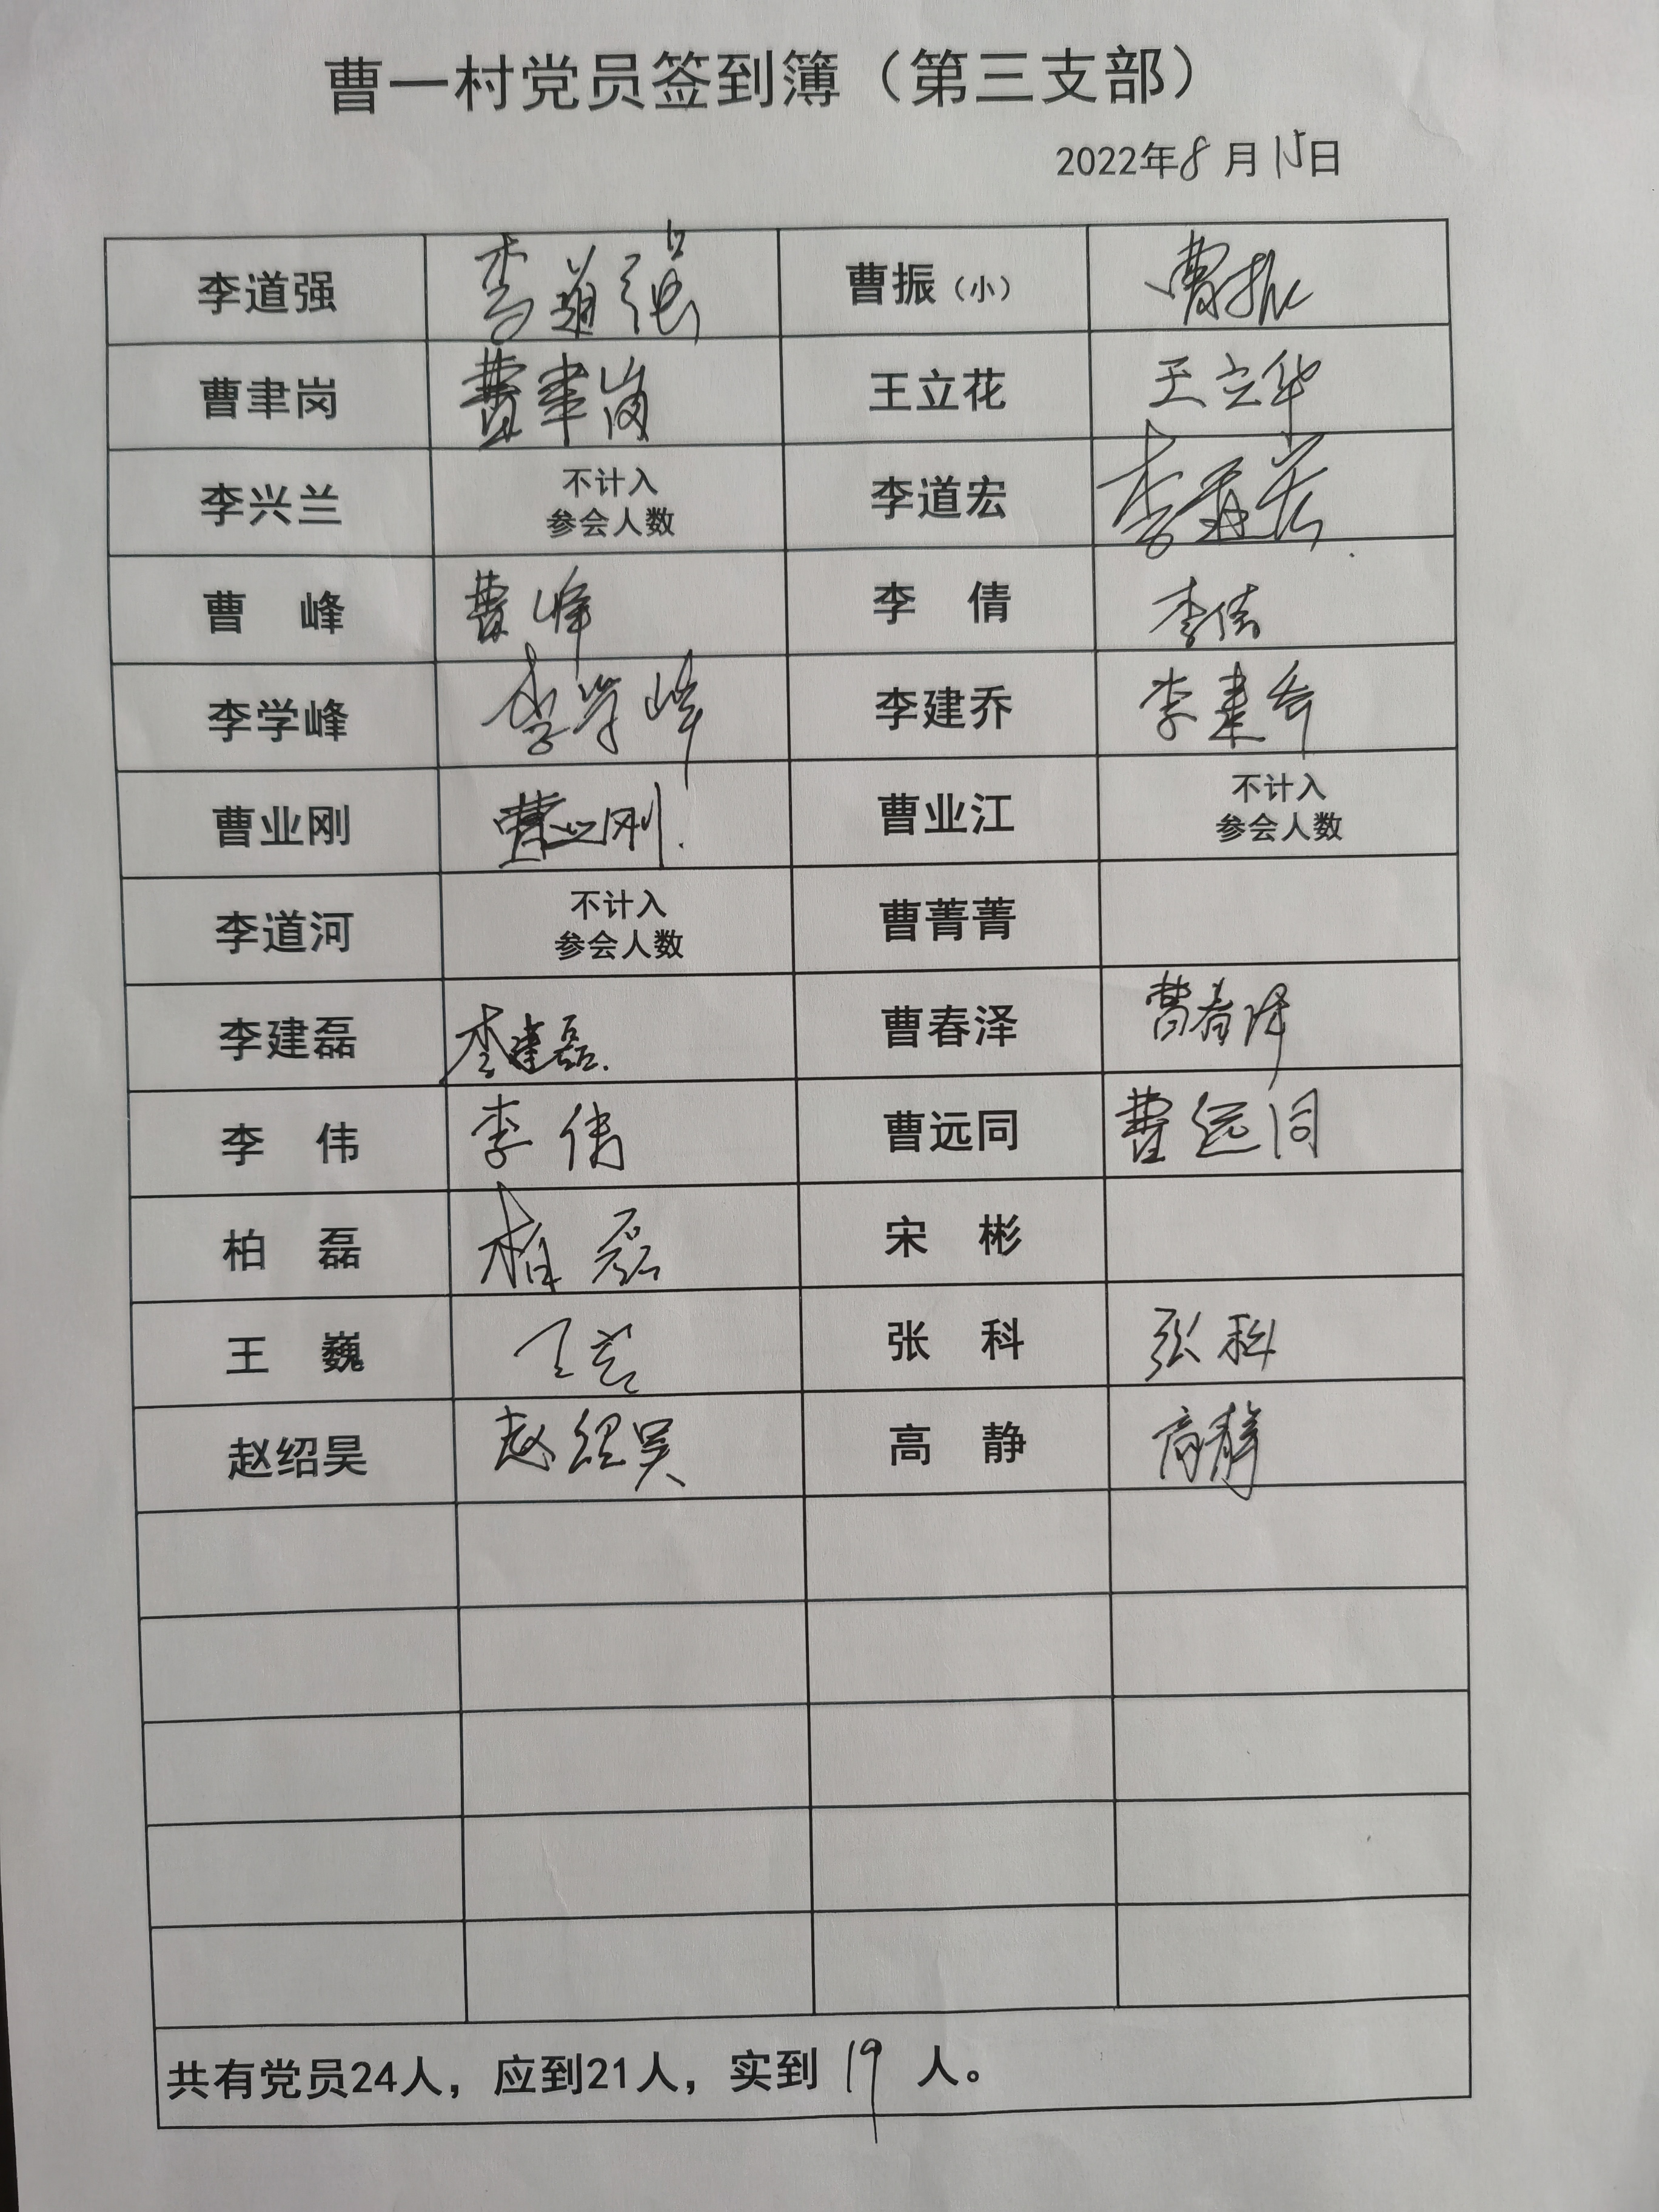 曹一村党员签到簿（第三支部）
2022年8月15日
李道强 李道强 曹振（小） 曹振
曹聿岗 曹聿岗 王立花 王立华
李兴兰 不计入 李道宏 李道宏
参会人数
曹 峰 曹峰 李 倩 李倩
李学峰 李学峰 李建乔 李建乔
曹业刚 曹业刚. 曹业江 不计入
参会人数
李道河 不计入 曹菁菁
参会人数
李建磊 李建磊. 曹春泽 曹春泽
李 伟 李伟 曹远同 曹远同
柏 磊 柏磊 宋 彬
王 巍 张 科 张科
赵绍昊 赵绍昊 高 静 高静
共有党员24人，应到21人，实到 19 人。